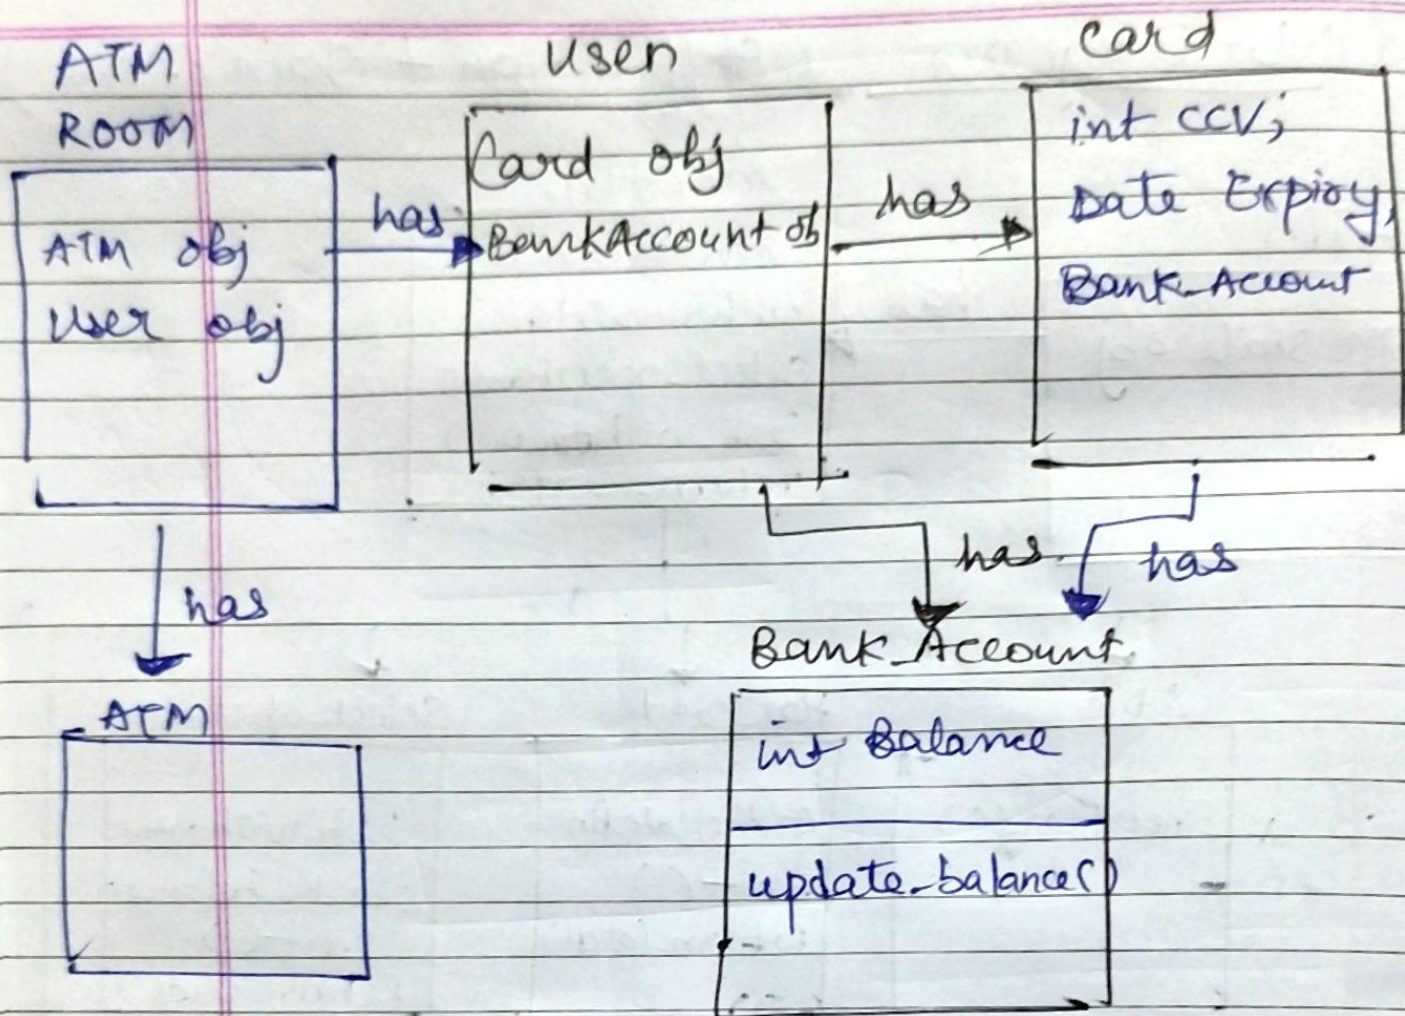 ATM
ROOM
ATM obj
User obj
has
has
ATM
User
Card obj
BankAccount ob
has
has
Card
int CCV;
Date Expiry,
Bank_Account
has
Bank_Account
int Balance
update_balance()